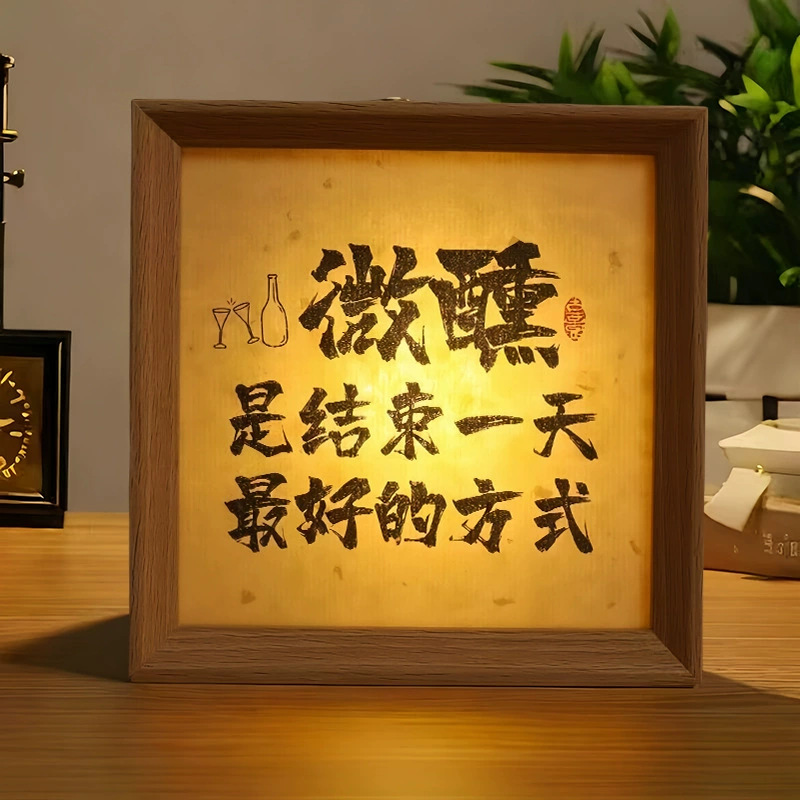 微醺
是结束一天
最好的方式